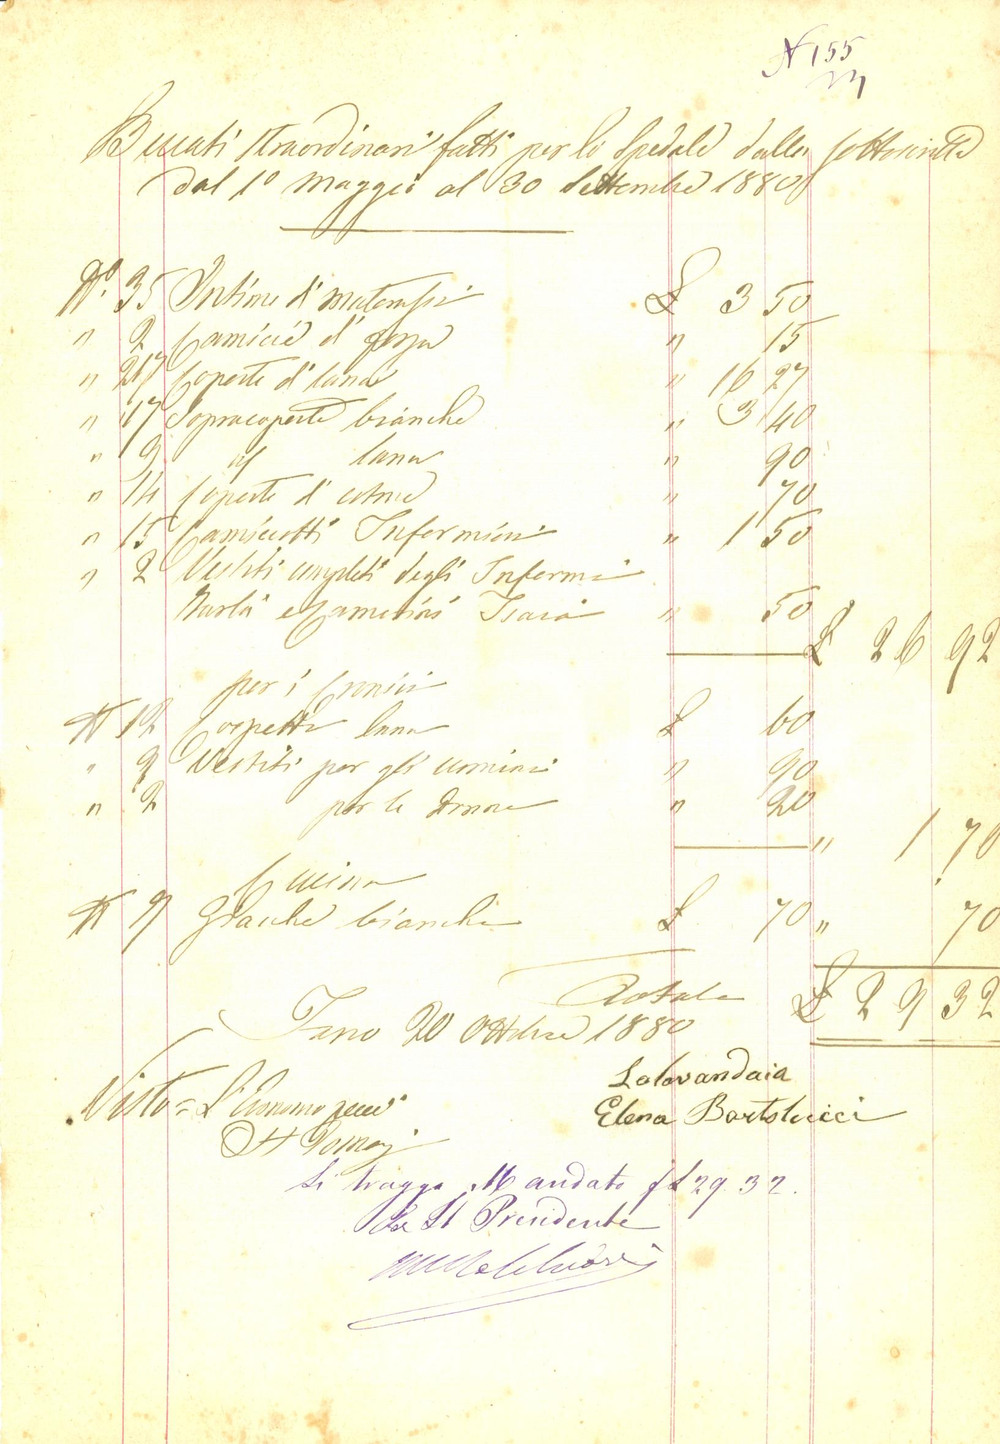 N 155
Bucati straordinari fatti per lo Spedale dalla sottoscritta
dal 1° Maggio al 30 Settembre 1880
N.° 35 Intime di matarassi £ 3 50
" 2 Camicie di forza " 15
" 217 Coperte di lana " 16 27
" 17 Sopracoperte bianche " 3 40
" 9 id lana " 90
" 14 Coperte di cotone " 70
" 15 Camiciotti Infermieri " 1 50
" 2 Vestiti completi degli Infermi
e Isaia " 50 £ 26 92
per i Cronici
N 12 Corpetti lana £ 60
" 9 Vestiti per gli uomini " 90
" 2 per le donne " 20 " 1 70
Cucina
N 7 bianchi £ 70 " 70
Totale £ 29 32
Fano 20 Ottobre 1880
La lavandaia
Visto = L'Economo
Elena Bartolucci
Si tragga Mandato p £ 29.32.
Il Presidente